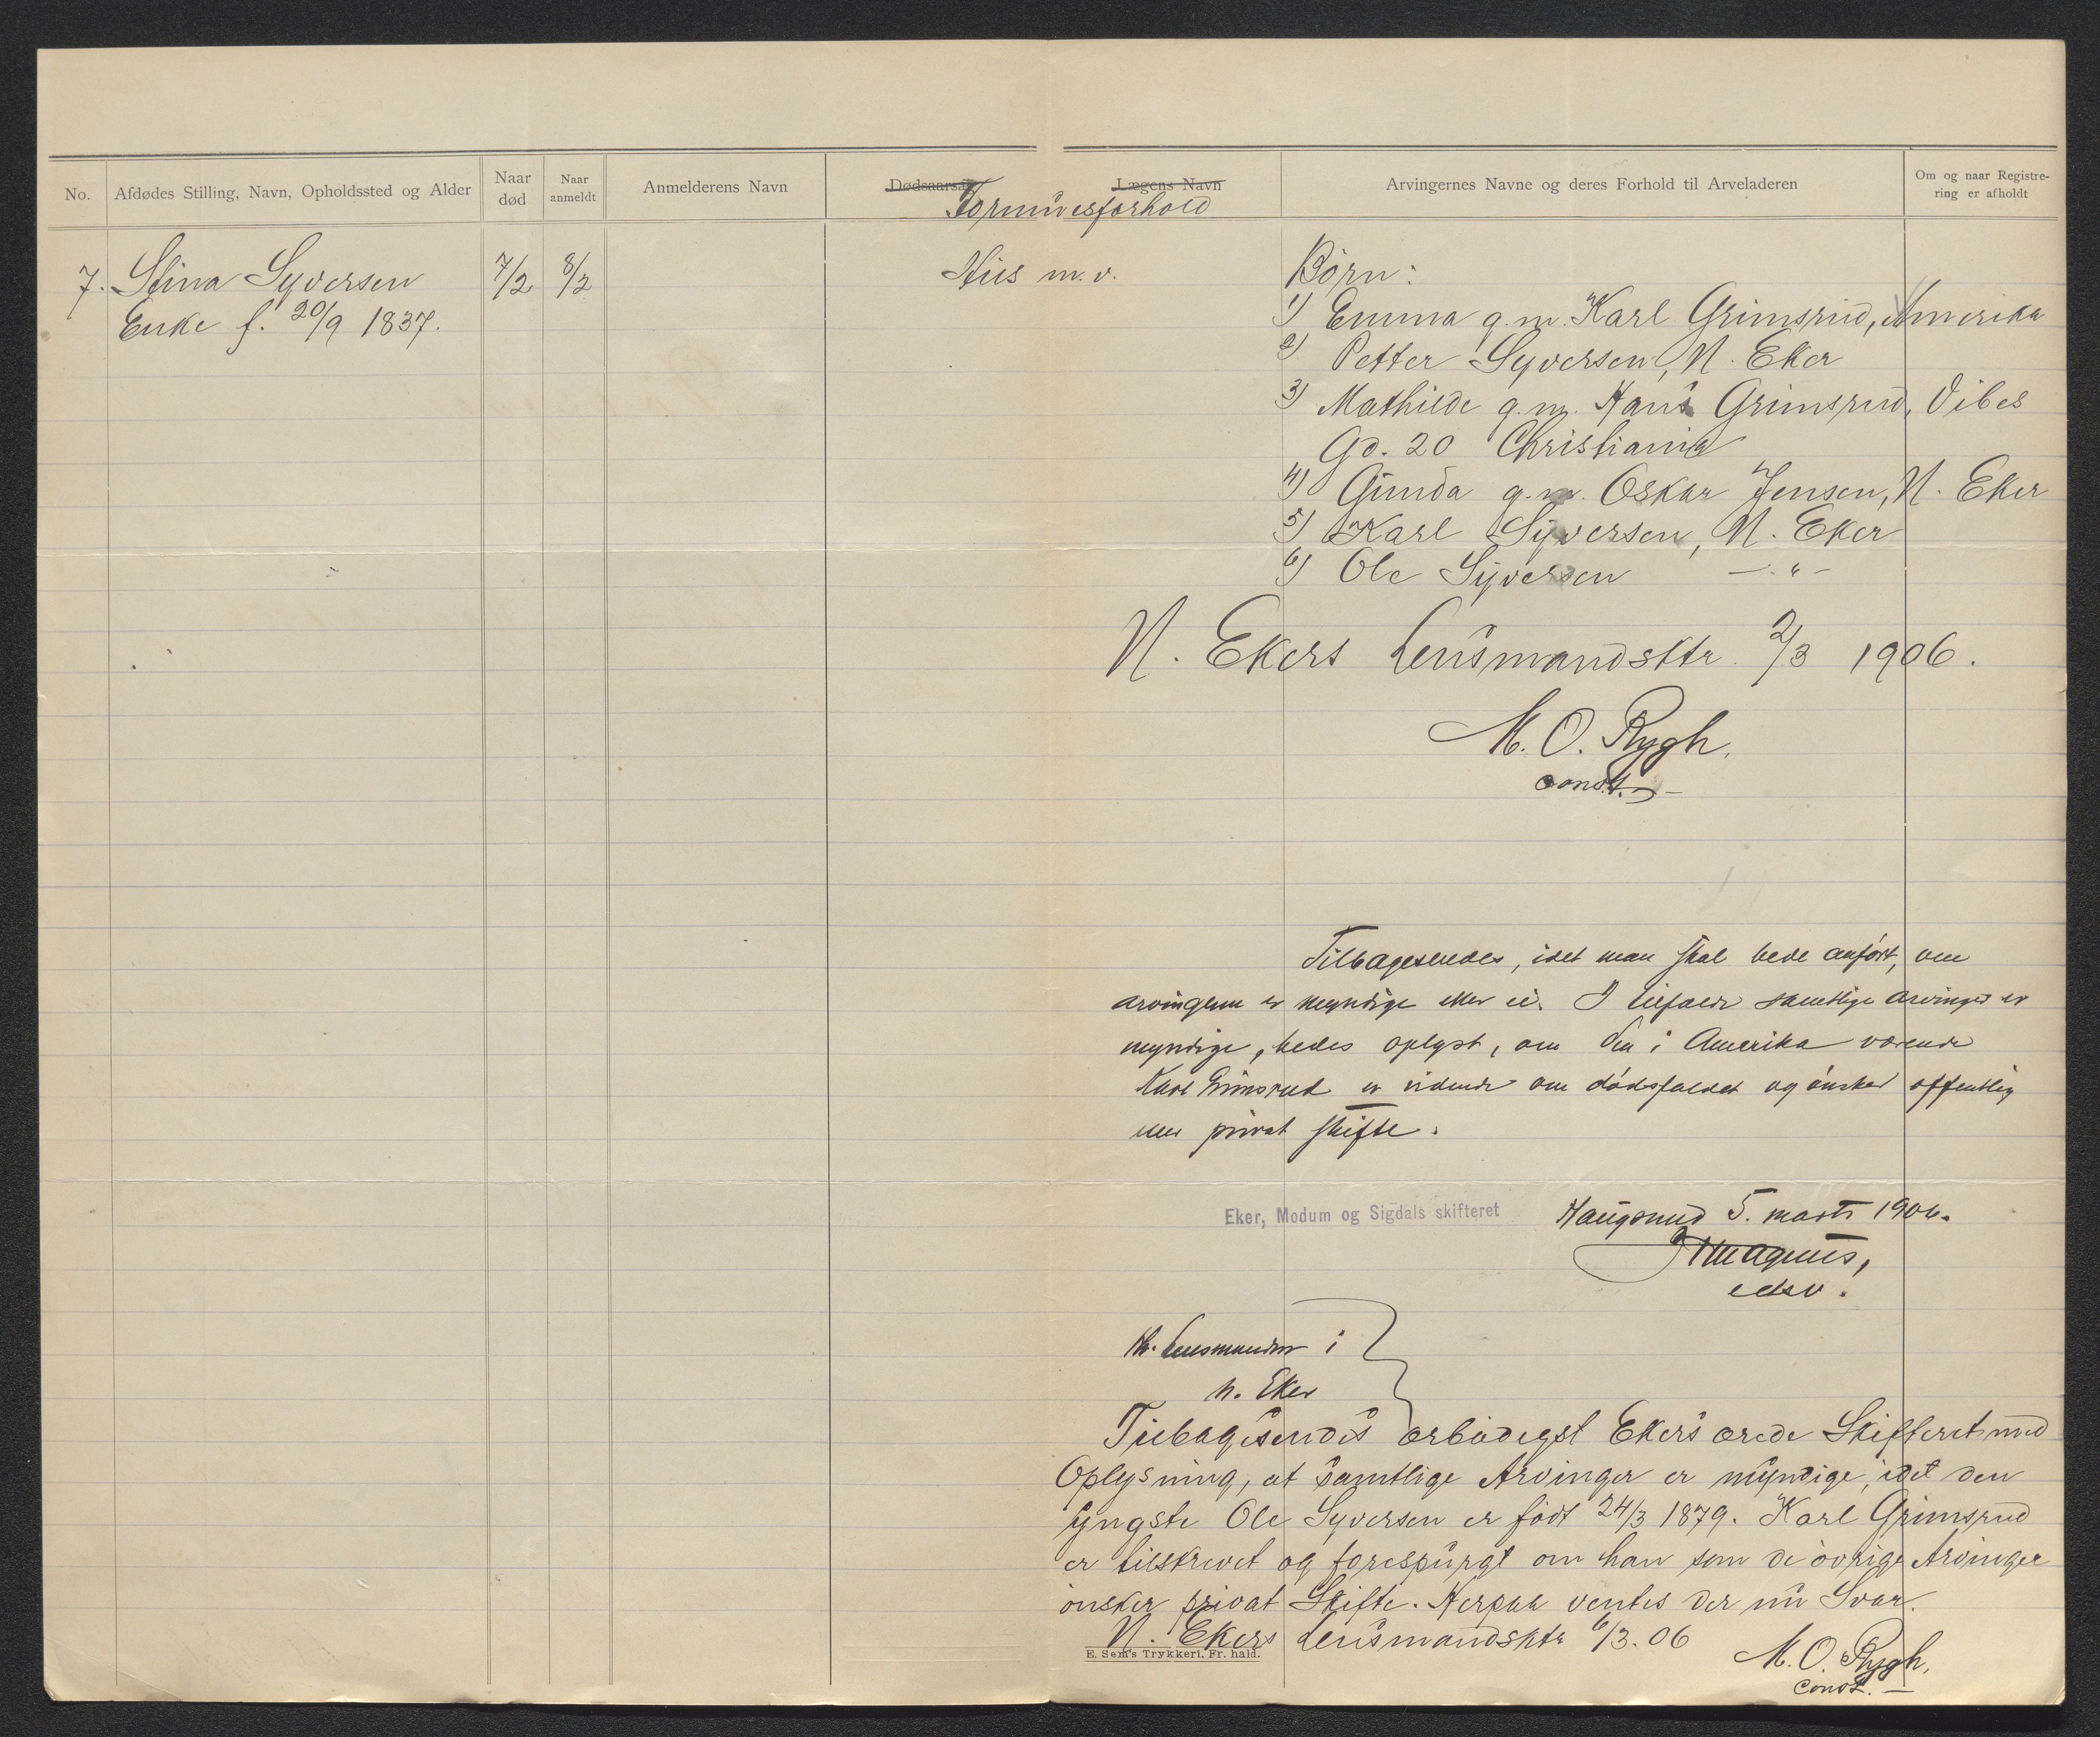 No.
Afdødes Stilling, Navn, Opholdssted og Alder
Naar død
Naar anmeldt
Anmelderens Navn
Dødsaarsag
Lægens Navn
Formuesforhold
Arvingernes Navne og deres Forhold til Arveladeren
Om og naar Registre-
ring er afholdt
7. Stina Syversen 7/2 8/2 Hus m.v.
Enke f. 20/9 1837.
Børn:
1) Emma g.m. Karl Grimsrud, Amerika
2) Petter Syversen, N. Eker
3) Mathilde g.m. Hans Grimsrud, Vibes
Gd. 20 Christiania
4) Gunda g.m. Oskar Jensen, N. Eker
5) Karl Syversen, N. Eker
6) Ole Syversen —"—
N. Ekers Lensmandsktr. 2/3 1906.
M. O. Rygh.
const.
Tilbagesendes, idet man skal bede anført, om
arvingerne er myndige eller ei. I tilfælde samtlige arvinger er
myndige, bedes oplyst, om den i Amerika værende
Karl Grimsrud er vidende om dødsfaldet og ønsker offentlig
eller privat skifte.
Eker, Modum og Sigdals skifteret
Haugsund 5. marts 1906.
Magnus,
edsv.
Hr. Lensmanden i
N. Eker
Tilbagesendes ærbødigst Ekers ærede Skifteret med
Oplysning, at samtlige Arvinger er myndige, idet den
yngste Ole Syversen er født 24/3 1879. Karl Grimsrud
er tilskrevet og forespurgt om han som de øvrige Arvinger
ønsker privat Skifte. Herpaa ventes der nu Svar.
N. Ekers Lensmandsktr 6/3. 06
M. O. Rygh.
const.
E. Sem's Trykkeri, Fr. hald.